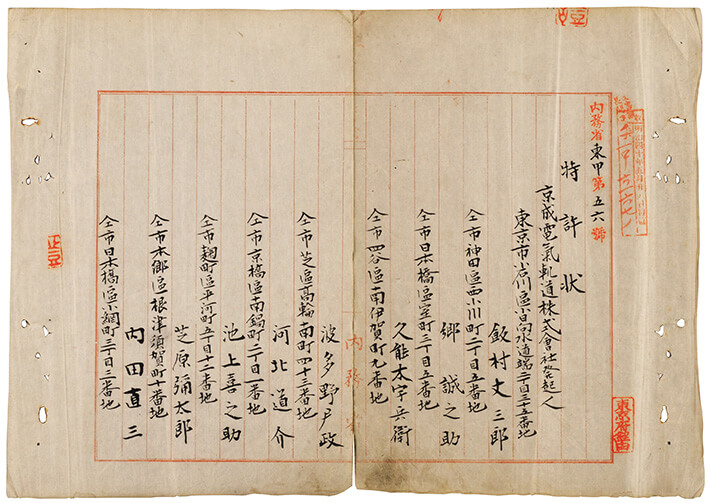 内務省東甲第五六號
特許状
京成電氣軌道株式會社発起人
東京市小石川區小日向水道端二丁目三十五番地
飯村丈三郎
仝市神田區西小川町二丁目五番地
郷誠之助
仝市日本橋區室町三丁目五番地
久能木宇兵衛
仝市四谷區南伊賀町九番地
波多野戸政
仝市芝區高輪南町四十三番地
河北道介
仝市京橋區南鍋町二丁目一番地
池上喜之助
仝市麹町區平河町五丁目十二番地
芝原彌太郎
仝市本郷區根津須賀町十番地
内田直三
仝市日本橋區小網町三丁目三番地
内務
東京府